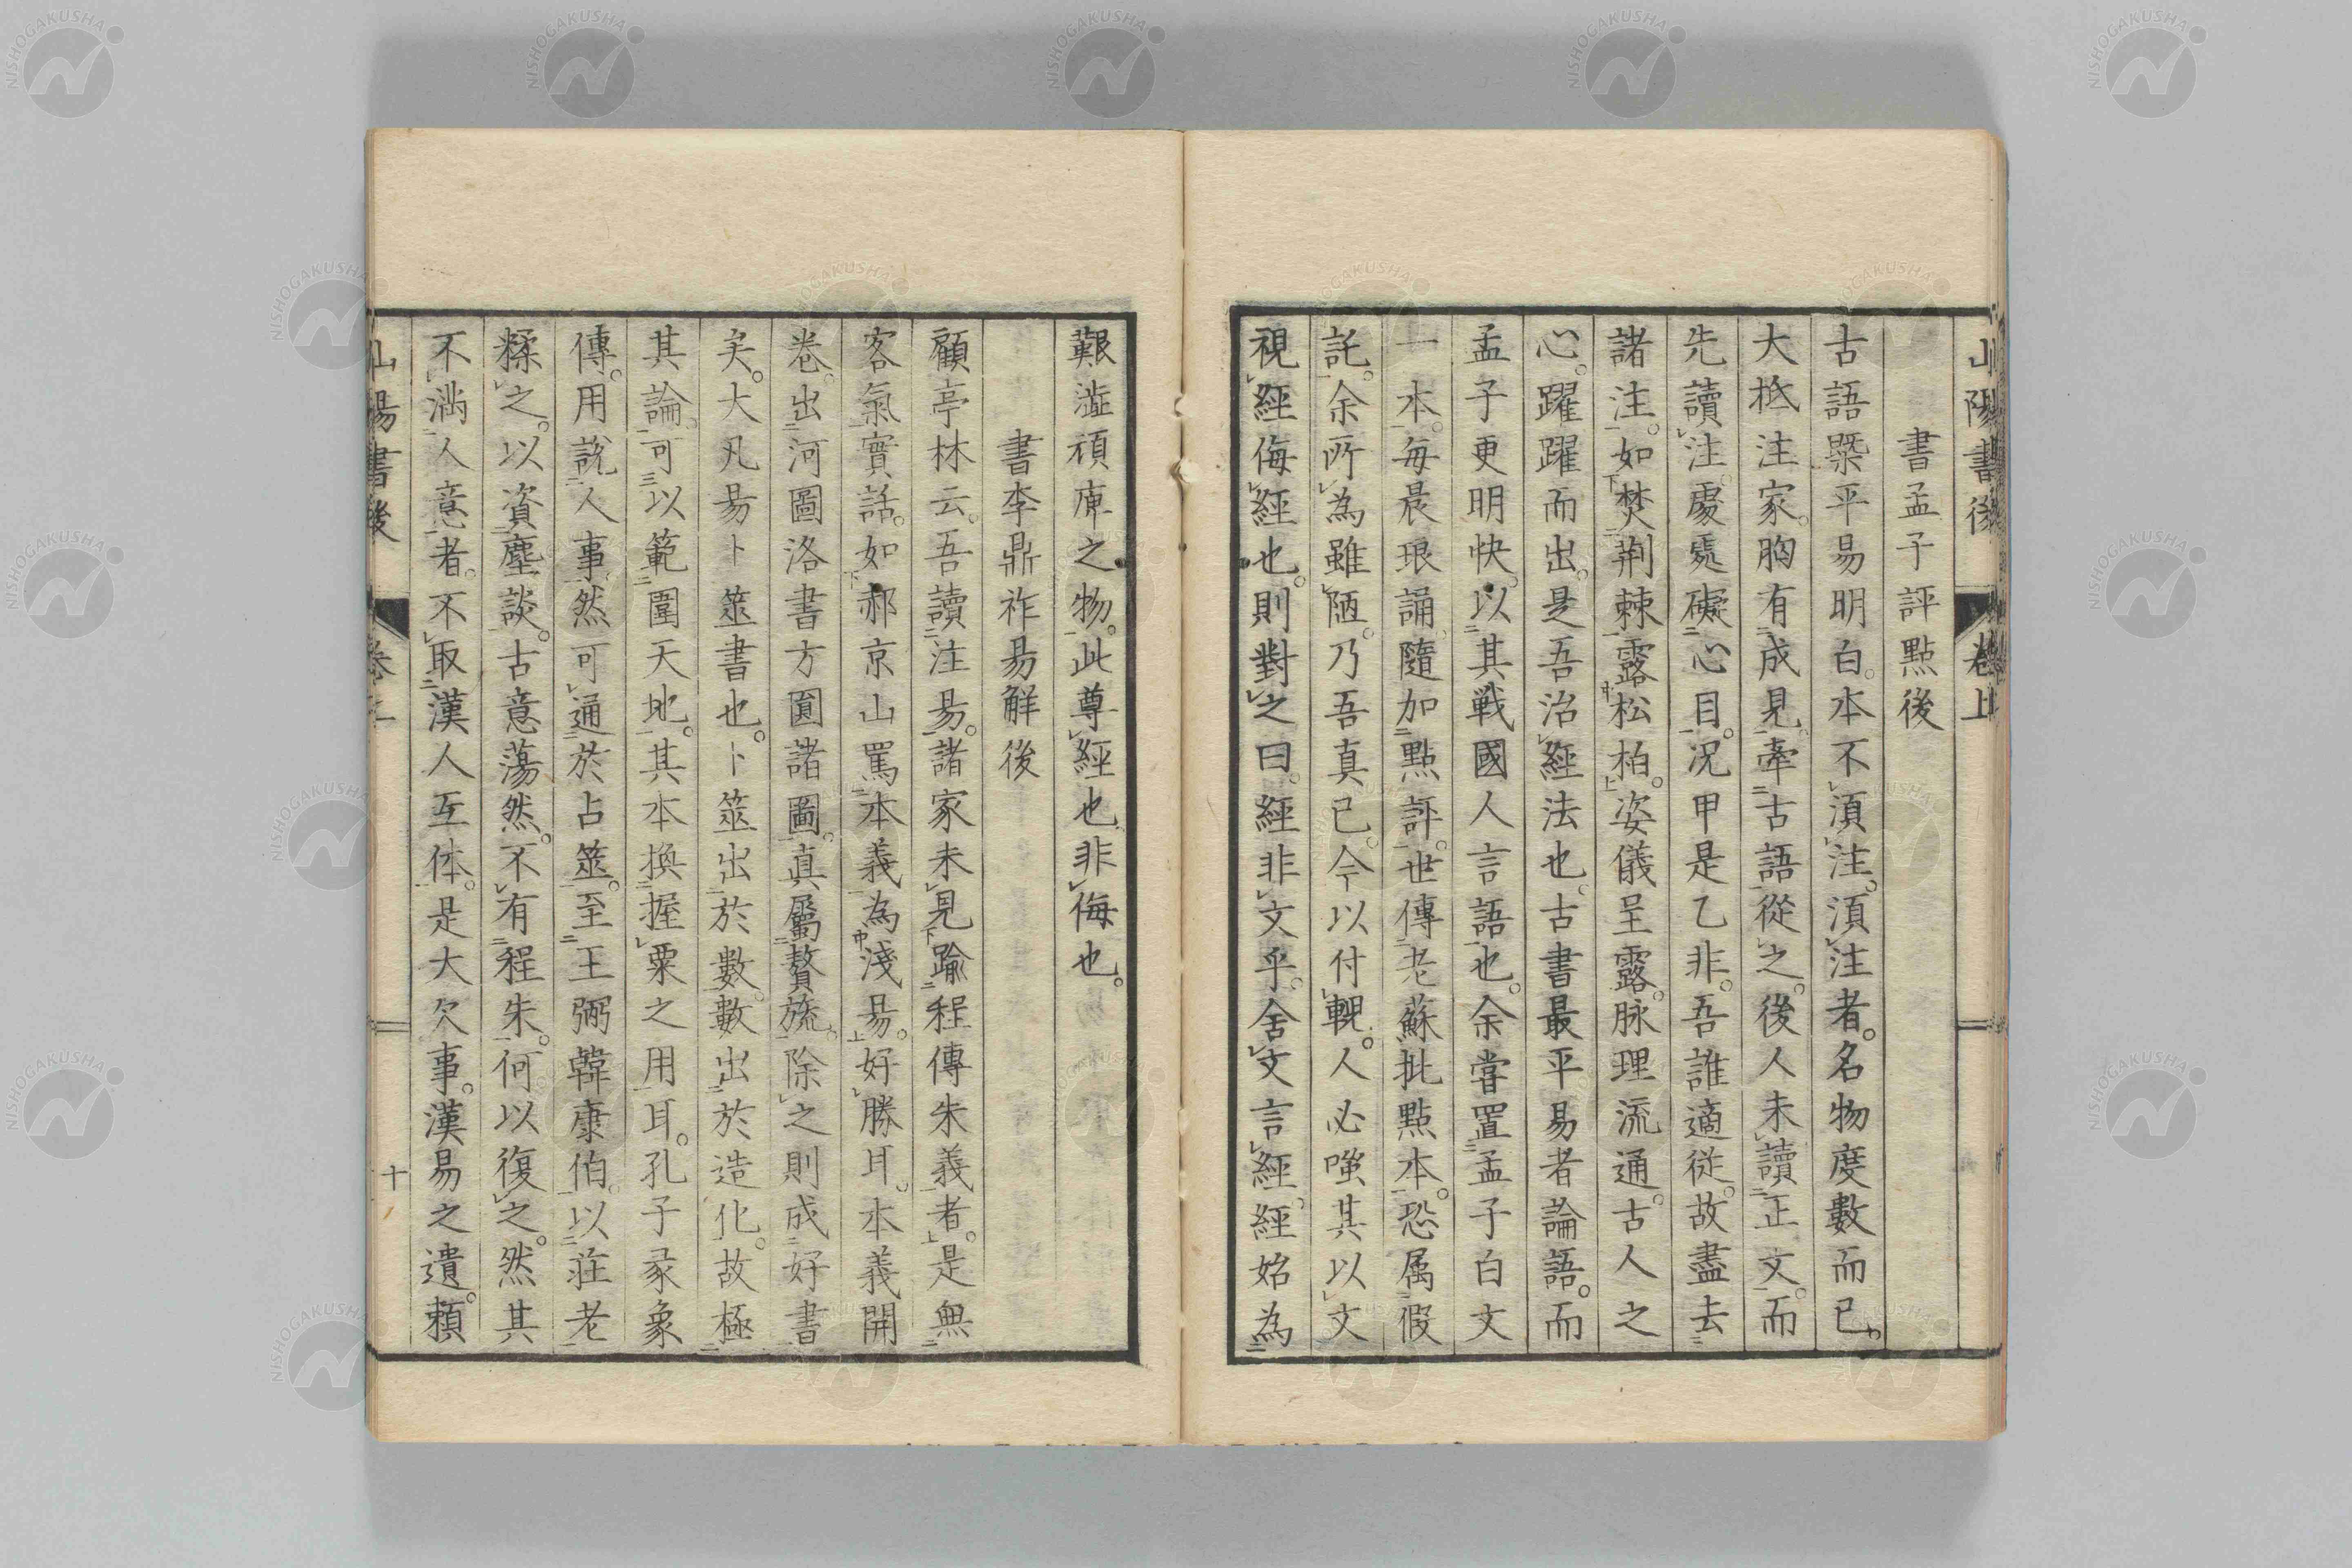 山陽書後 卷上
書孟子評點後
古語槩平易明白。本不須注。須注者。名物度數而已。
大抵注家。胸有成見。牽古語從之。後人未讀正文。而
先讀注。處處礙心目。況甲是乙非。吾誰適從。故盡去
諸注。如焚荆棘露松柏。姿儀呈露。脉理流通。古人之
心。躍躍而出。是吾治經法也。古書最平易者論語。而
孟子更明快。以其戰國人言語也。余嘗置孟子白文
一本。每晨琅誦。隨加點評。世傳老蘇批點本。恐属假
託。余所為雖陋。乃吾真已。今以付輗。人必嗤其以文
視經侮經也。則對之曰。經非文乎。舍文言經。經始為
艱澁頑庳之物。此尊經也非侮也。
書李鼎祚易解後
顧亭林云。吾讀注易。諸家未見踰程傳朱義者。是無
客氣實話。如郝京山罵本義為淺易。好勝耳。本義開
卷。出河圖洛書方圓諸圖。真屬贅旒。除之則成好書
矣。大凡易卜筮書也。卜筮出於數。數出於造化。故極
其論。可以範圍天地。其本換握粟之用耳。孔子彖象
傳。用說人事。然可通於占筮。至王弼韓康伯。以莊老
糅之。以資塵談。古意蕩然。不有程朱。何以復之。然其
不滿人意者。不取漢人互体。是大欠事。漢易之遺。賴
山陽書後 十
NISHOGAKUSHA